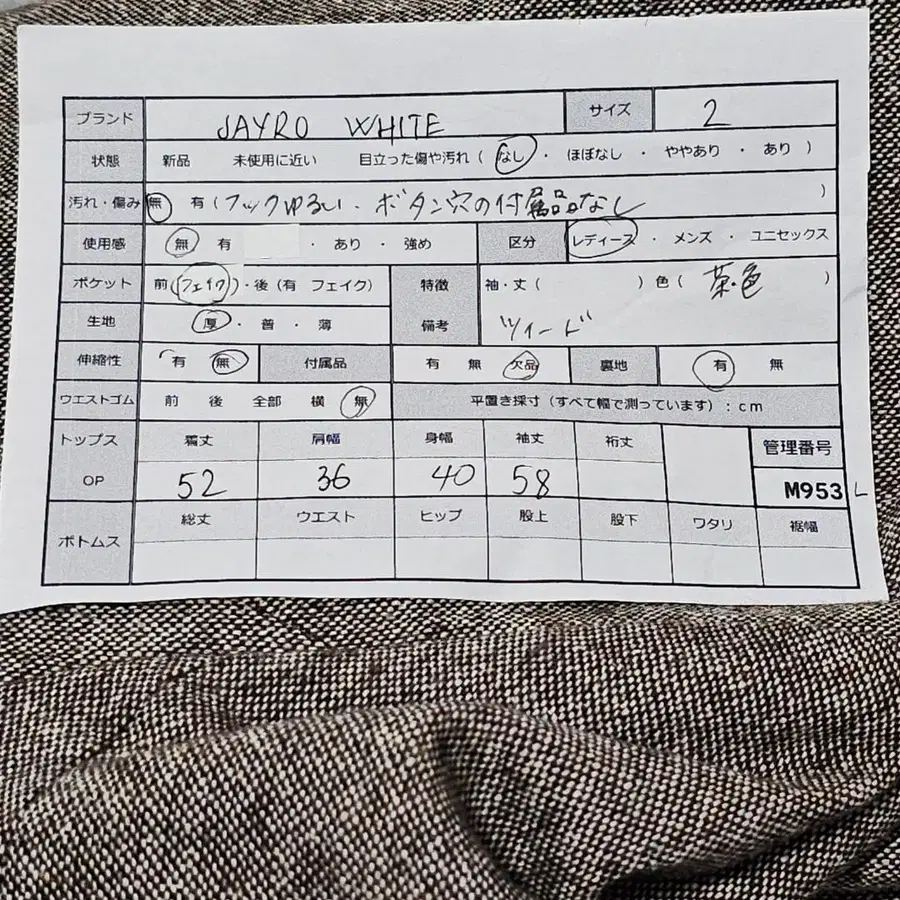 ブランド JAYRO WHITE サイズ 2
状態 新品 未使用に近い 目立った傷や汚れ ( なし ・ ほぼなし ・ ややあり ・ あり )
汚れ・傷み 無 有 ( フックゆるい・ボタン穴の付属品なし )
使用感 無 有 ・ あり ・ 強め 区分 レディース ・ メンズ ・ ユニセックス
ポケット 前 (フェイク)・後 (有 フェイク) 特徴 袖・丈 ( ) 色 ( 茶・色 )
生地 厚 ・ 普 ・ 薄 備考 ツイード
伸縮性 有 無 付属品 有 無 欠品 裏地 有 無
ウエストゴム 前 後 全部 横 無 平置き採寸 (すべて幅で測っています) : cm
トップス 着丈 肩幅 身幅 袖丈 裄丈 管理番号
OP 52 36 40 58 M953 L
ボトムス 総丈 ウエスト ヒップ 股上 股下 ワタリ 裾幅